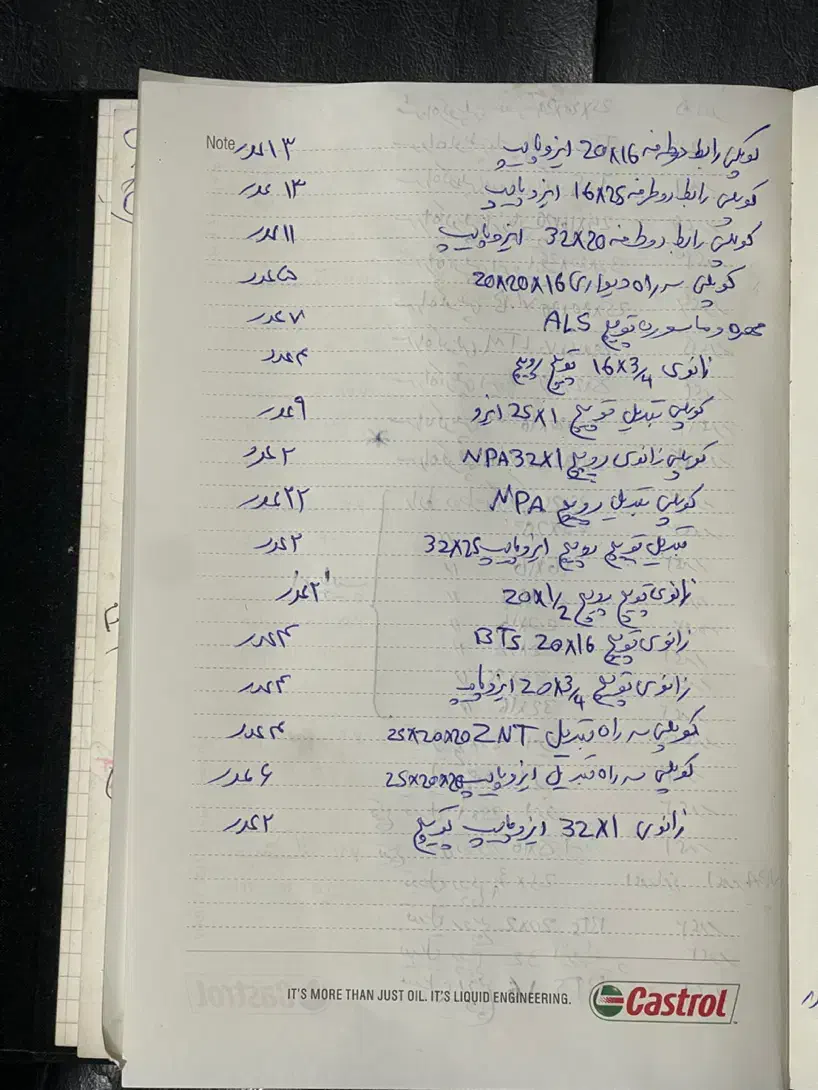 Note
کوپلی رابط دوطرفه 20X16 ایزوپایپ ۱۳ عدد
کوپلی رابط دوطرفه 16X25 ایزوپایپ ۱۳ عدد
کوپلی رابط دوطرفه 32X20 ایزوپایپ ۱۱ عدد
کوپلی سه راه دیواری 20X20X16 ۵ عدد
مهره و ماسوره توپیچ ALS ۷ عدد
زانوی 16X3/4 توپیچ روپیچ ۴ عدد
کوپلی تبدیل توپیچ 25X1 ایزو ۹ عدد
کوپلی زانوی روپیچ NPA32X1 ۲ عدد
کوپلی تبدیل روپیچ NPA ۲۲ عدد
تبدیل توپیچ روپیچ ایزوپایپ 32X25 ۲ عدد
زانوی توپیچ روپیچ 20X1/2 ۲ عدد
زانوی توپیچ BTS 20X16 ۳ عدد
زانوی توپیچ 20X3/4 ایزوپایپ ۳ عدد
کوپلی سه راه تبدیل ZNT 25X20X20 ۴ عدد
کوپلی سه راه تبدیل ایزوپایپ 25X20X20 ۶ عدد
زانوی 32X1 ایزوپایپ توپیچ ۲ عدد
IT'S MORE THAN JUST OIL. IT'S LIQUID ENGINEERING.
Castrol